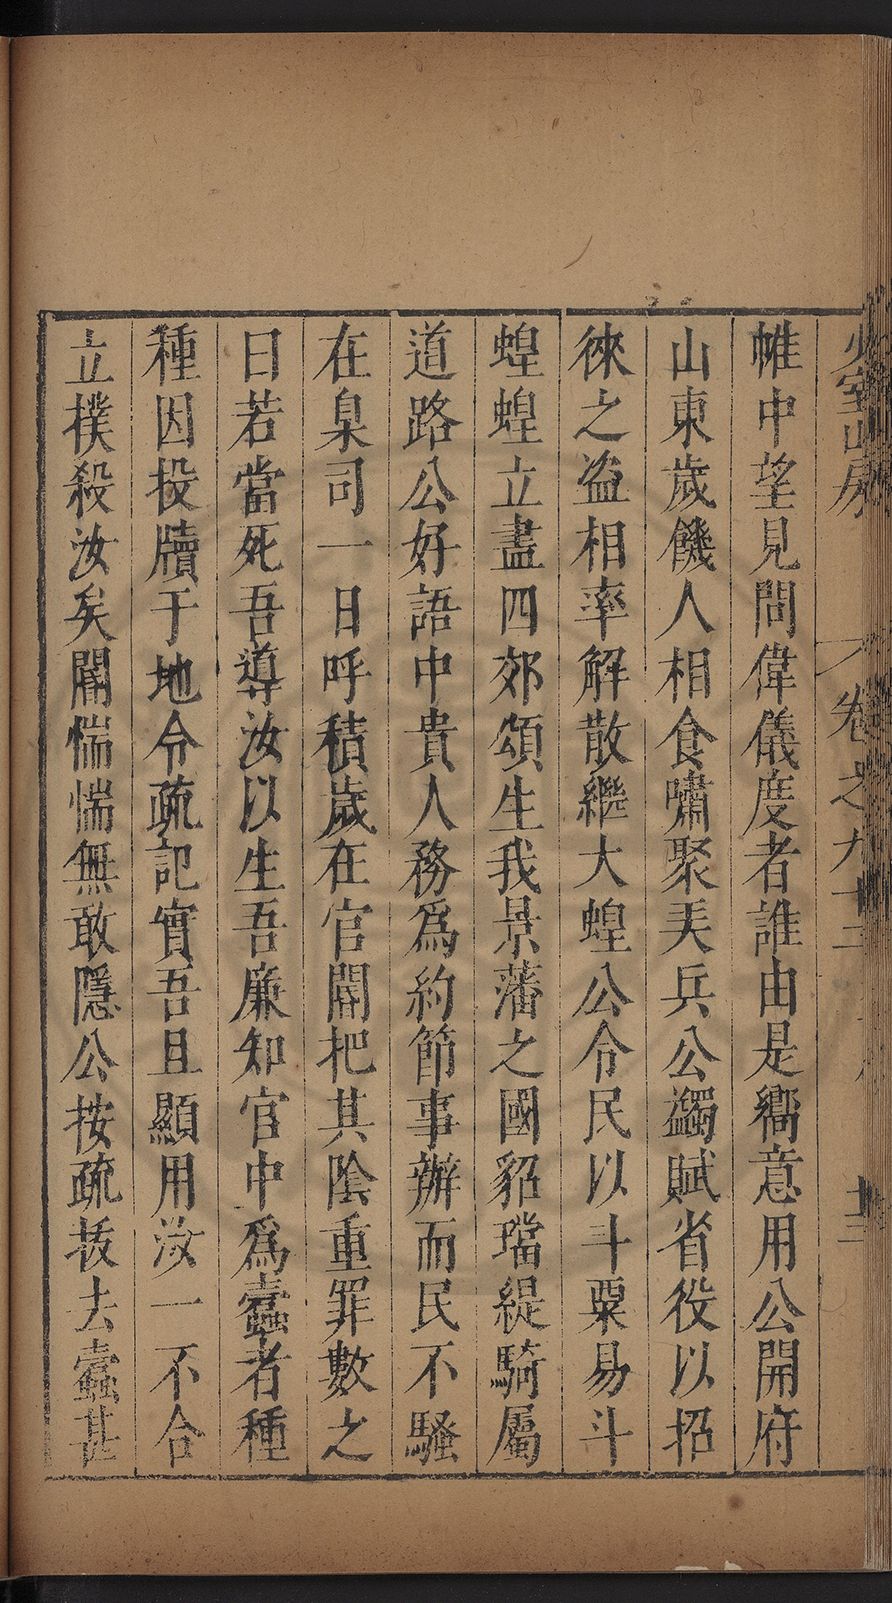 少室山房
卷之九十二
帷中望見問偉儀度者誰由是嚮意用公開府
山東歲饑人相食嘯聚弄兵公蠲賦省役以招
徠之盜相率解散繼大蝗公令民以斗粟易斗
蝗蝗立盡四郊頌生我景藩之國貂璫緹騎屬
道路公好語中貴人務爲約節事辦而民不騷
在臬司一日呼積歲在官闒把其陰重罪數之
曰若當死吾導汝以生吾廉知官中爲蠹者種
種因投牘于地令疏記實吾且顯用汝一不合
立撲殺汝矣闒惴惴無敢隱公按疏拔去蠹甚